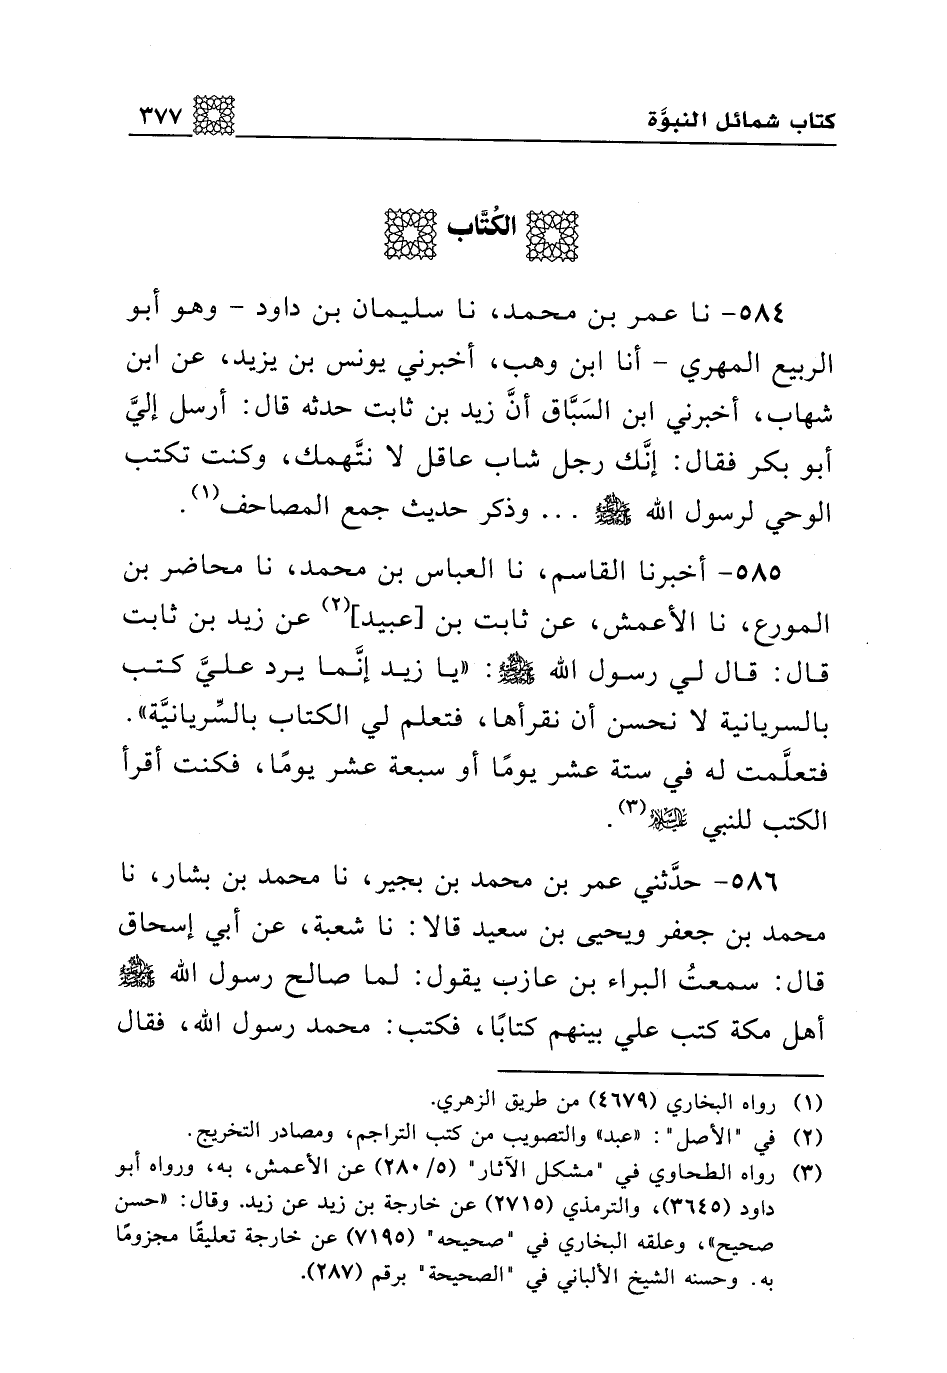 كتاب شمائل النبوَّة ٣٧٧
الكُتَّاب
٥٨٤- نا عمر بن محمد، نا سليمان بن داود - وهو أبو
الربيع المهري - أنا ابن وهب، أخبرني يونس بن يزيد، عن ابن
شهاب، أخبرني ابن السَبَّاق أنَّ زيد بن ثابت حدثه قال: أرسل إليَّ
أبو بكر فقال: إنَّك رجل شاب عاقل لا نتَّهمك، وكنت تكتب
الوحي لرسول الله ﷺ ... وذكر حديث جمع المصاحف(١).
٥٨٥- أخبرنا القاسم، نا العباس بن محمد، نا محاضر بن
المورع، نا الأعمش، عن ثابت بن [عبيد](٢) عن زيد بن ثابت
قال: قال لي رسول الله ﷺ: «يا زيد إنَّما يرد عليَّ كتب
بالسريانية لا نحسن أن نقرأها، فتعلم لي الكتاب بالسِّريانيَّة».
فتعلَّمت له في ستة عشر يومًا أو سبعة عشر يومًا، فكنت أقرأ
الكتب للنبي عليه السلام(٣).
٥٨٦- حدَّثني عمر بن محمد بن بجير، نا محمد بن بشار، نا
محمد بن جعفر ويحيى بن سعيد قالا: نا شعبة، عن أبي إسحاق
قال: سمعتُ البراء بن عازب يقول: لما صالح رسول الله ﷺ
أهل مكة كتب علي بينهم كتابًا، فكتب: محمد رسول الله، فقال
(١) رواه البخاري (٤٦٧٩) من طريق الزهري.
(٢) في "الأصل": «عبد» والتصويب من كتب التراجم، ومصادر التخريج.
(٣) رواه الطحاوي في "مشكل الآثار" (٥/ ٢٨٠) عن الأعمش، به، ورواه أبو
داود (٣٦٤٥)، والترمذي (٢٧١٥) عن خارجة بن زيد عن زيد. وقال: «حسن
صحيح»، وعلقه البخاري في "صحيحه" (٧١٩٥) عن خارجة تعليقًا مجزومًا
به. وحسنه الشيخ الألباني في "الصحيحة" برقم (٢٨٧).